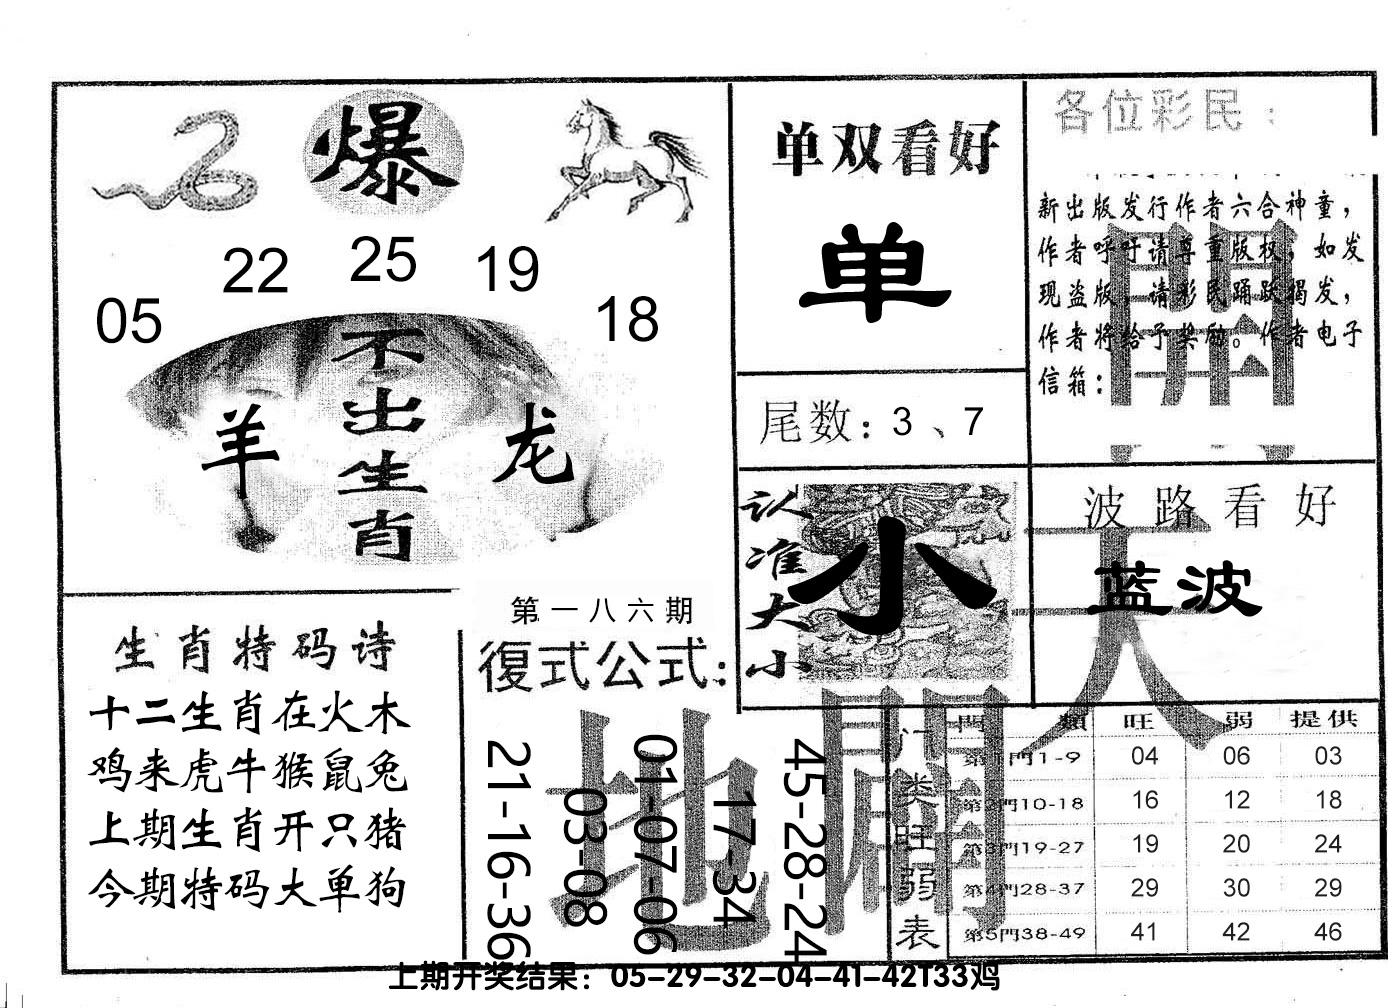 爆
05 22 25 19 18
不出生肖
羊 龙
单双看好
单
尾数：3、7
各位彩民：
新出版发行作者六合神童，
作者呼吁请尊重版权，如发
现盗版，请彩民踊跃揭发，
作者将给予奖励。作者电子
信箱：
认准大小
小
波路看好
蓝波
天
開
生肖特码诗
十二生肖在火木
鸡来虎牛猴鼠兔
上期生肖开只猪
今期特码大单狗
第一八六期
復式公式：
地
21-16-36
03-08
01-07-06
17-34
45-28-24
门类旺弱表
門類 旺 弱 提供
第1門1-9 04 06 03
第2門10-18 16 12 18
第3門19-27 19 20 24
第4門28-37 29 30 29
第5門38-49 41 42 46
上期开奖结果：05-29-32-04-41-42T33鸡